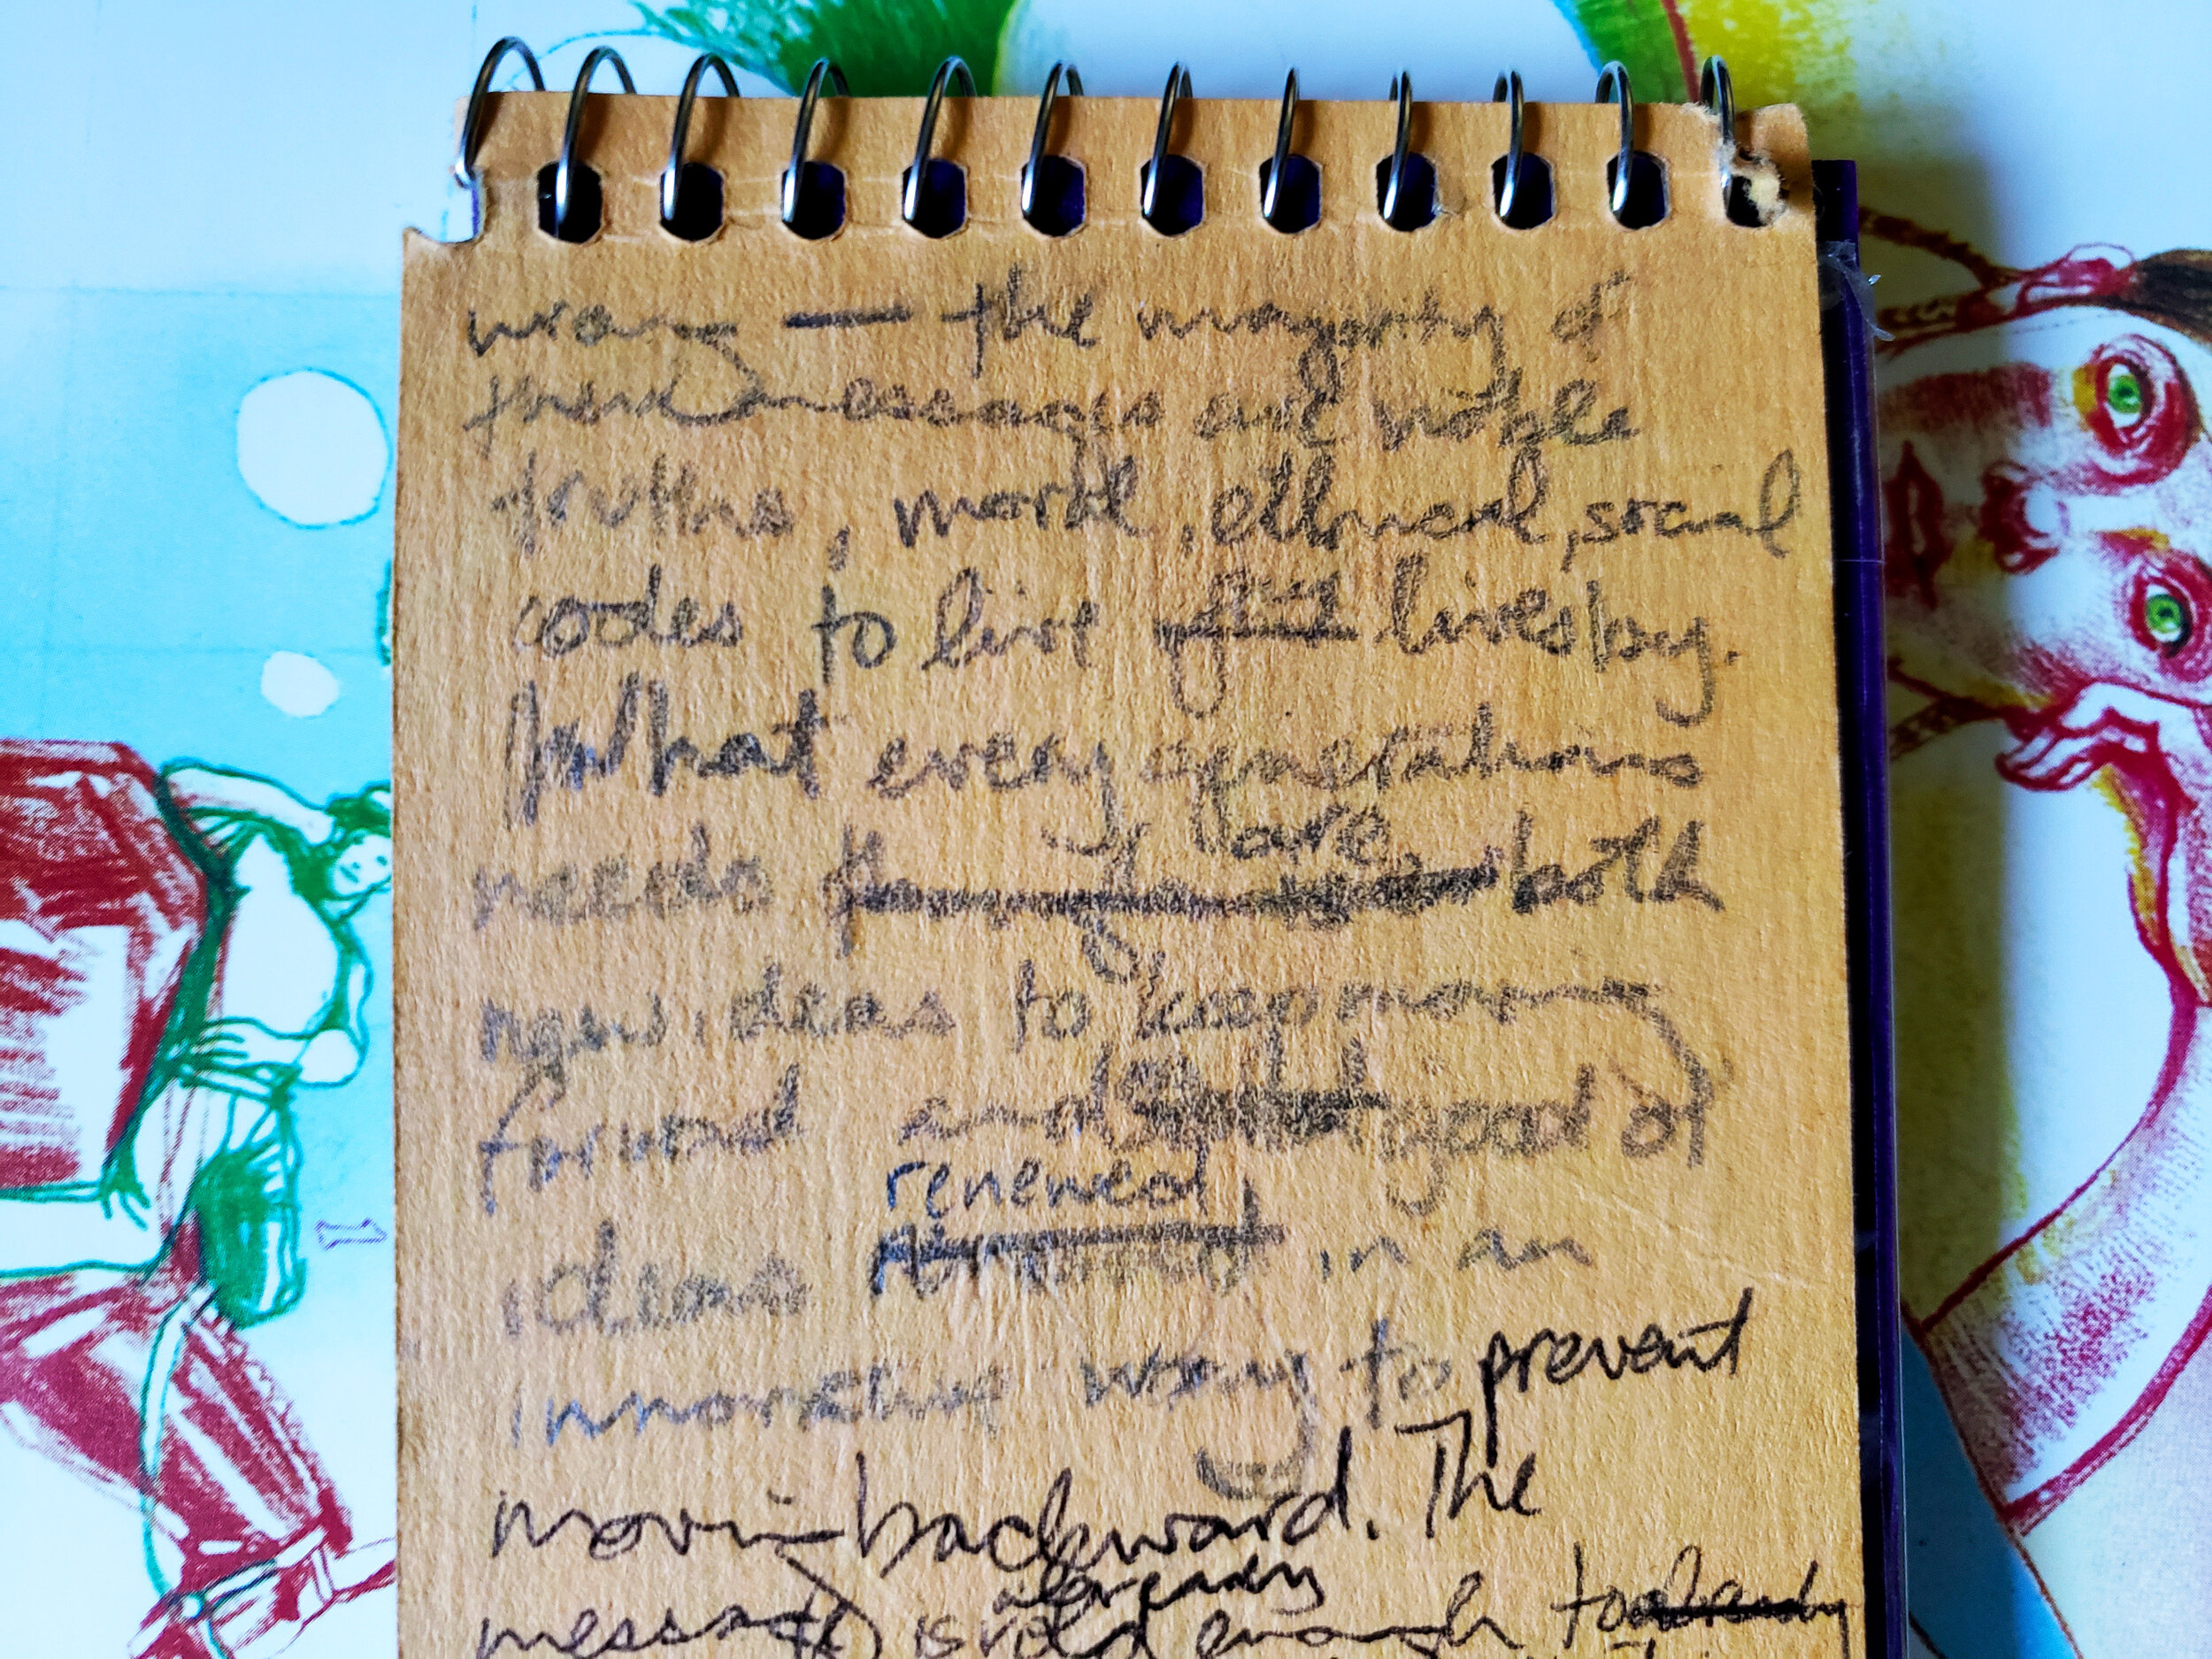 wrong — the majority of
messages are noble
truths, moral, ethical, social
codes to live lives by.
What every generations
needs are both
new ideas to keep moving
forward and good old
ideas renewed in an
innovative way to prevent
moving backward. The
already
message is old enough to already